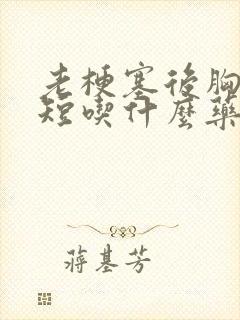 老梗塞後胸
短喫什麼藥
蔣基芳